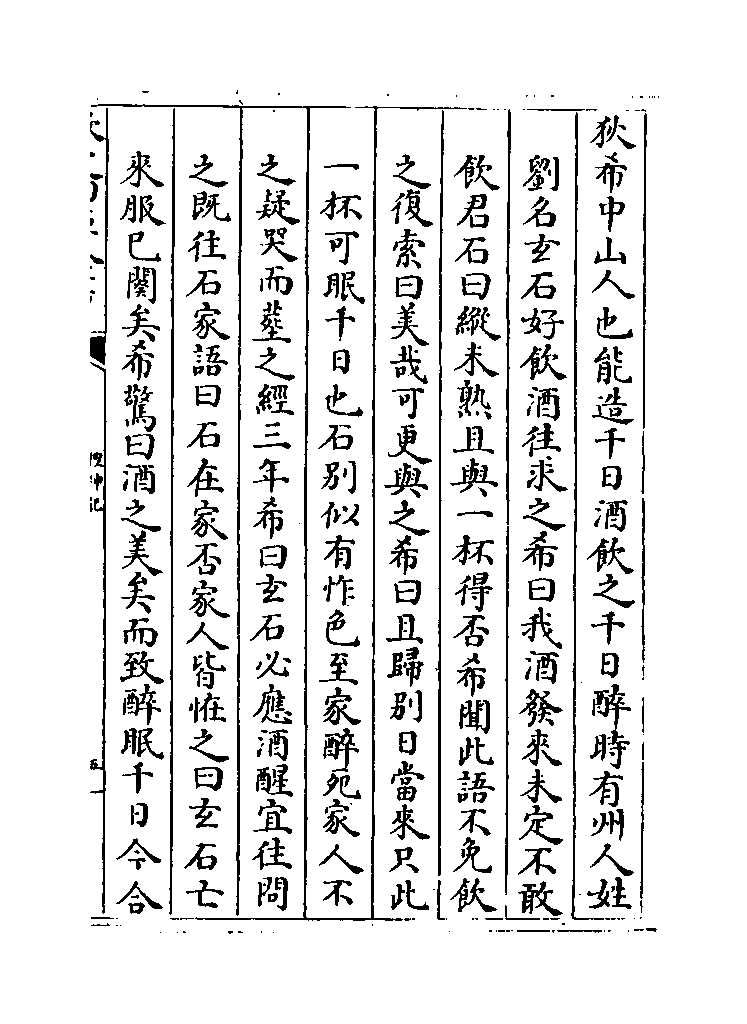 狄希中山人也能造千日酒飲之千日醉時有州人姓
劉名玄石好飲酒往求之希曰我酒發來未定不敢
飲君石曰縱未熟且與一杯得否希聞此語不免飲
之復索曰美哉可更與之希曰且歸别日當來只此
一杯可眠千日也石别似有怍色至家醉死家人不
之疑哭而塟之經三年希曰玄石必應酒醒宜往問
之既往石家語曰石在家否家人皆恠之曰玄石亡
來服已闋矣希驚曰酒之美矣而致醉眠千日今合
搜神記